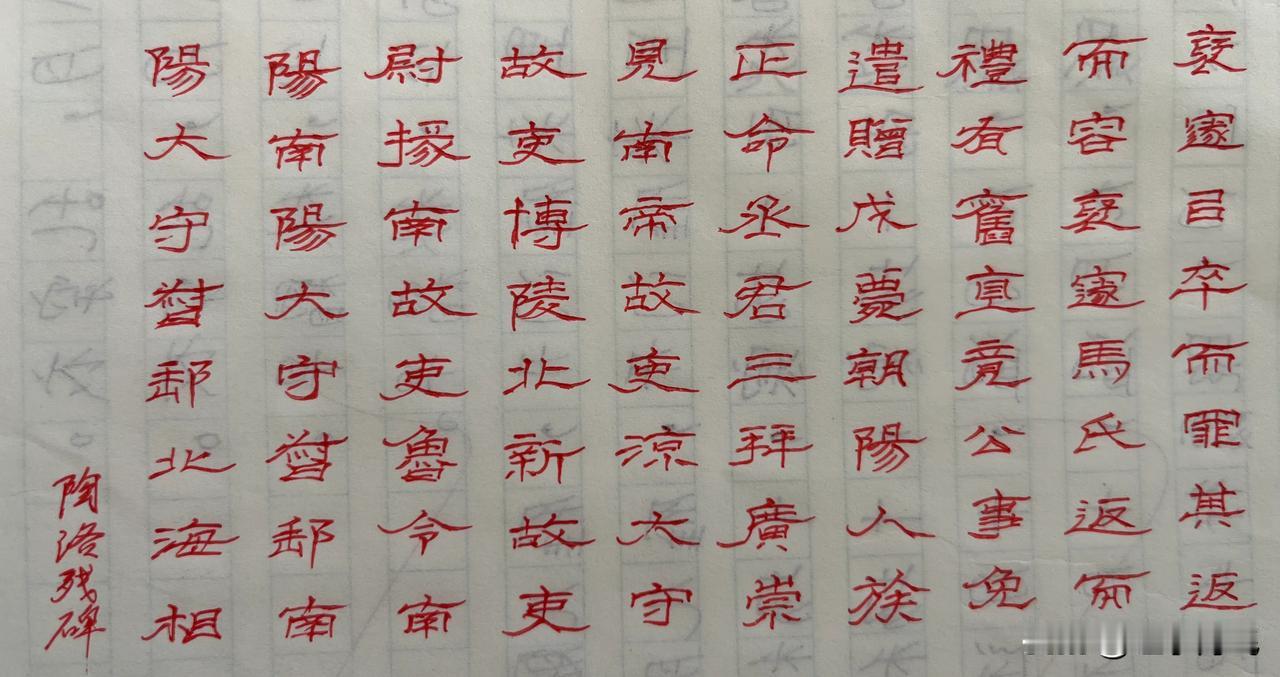 裦邃㠯卒而罪其返
而容裦邃馬氏返而
禮有舊直竟公事免
遣贈戊薨朝陽人族
正命丞君三拜廣崇
見南帝故吏涼大守
故吏博陵北新故吏
尉掾南故吏魯令南
陽南陽大守督郵南
陽大守督郵北海相
陶洛残碑